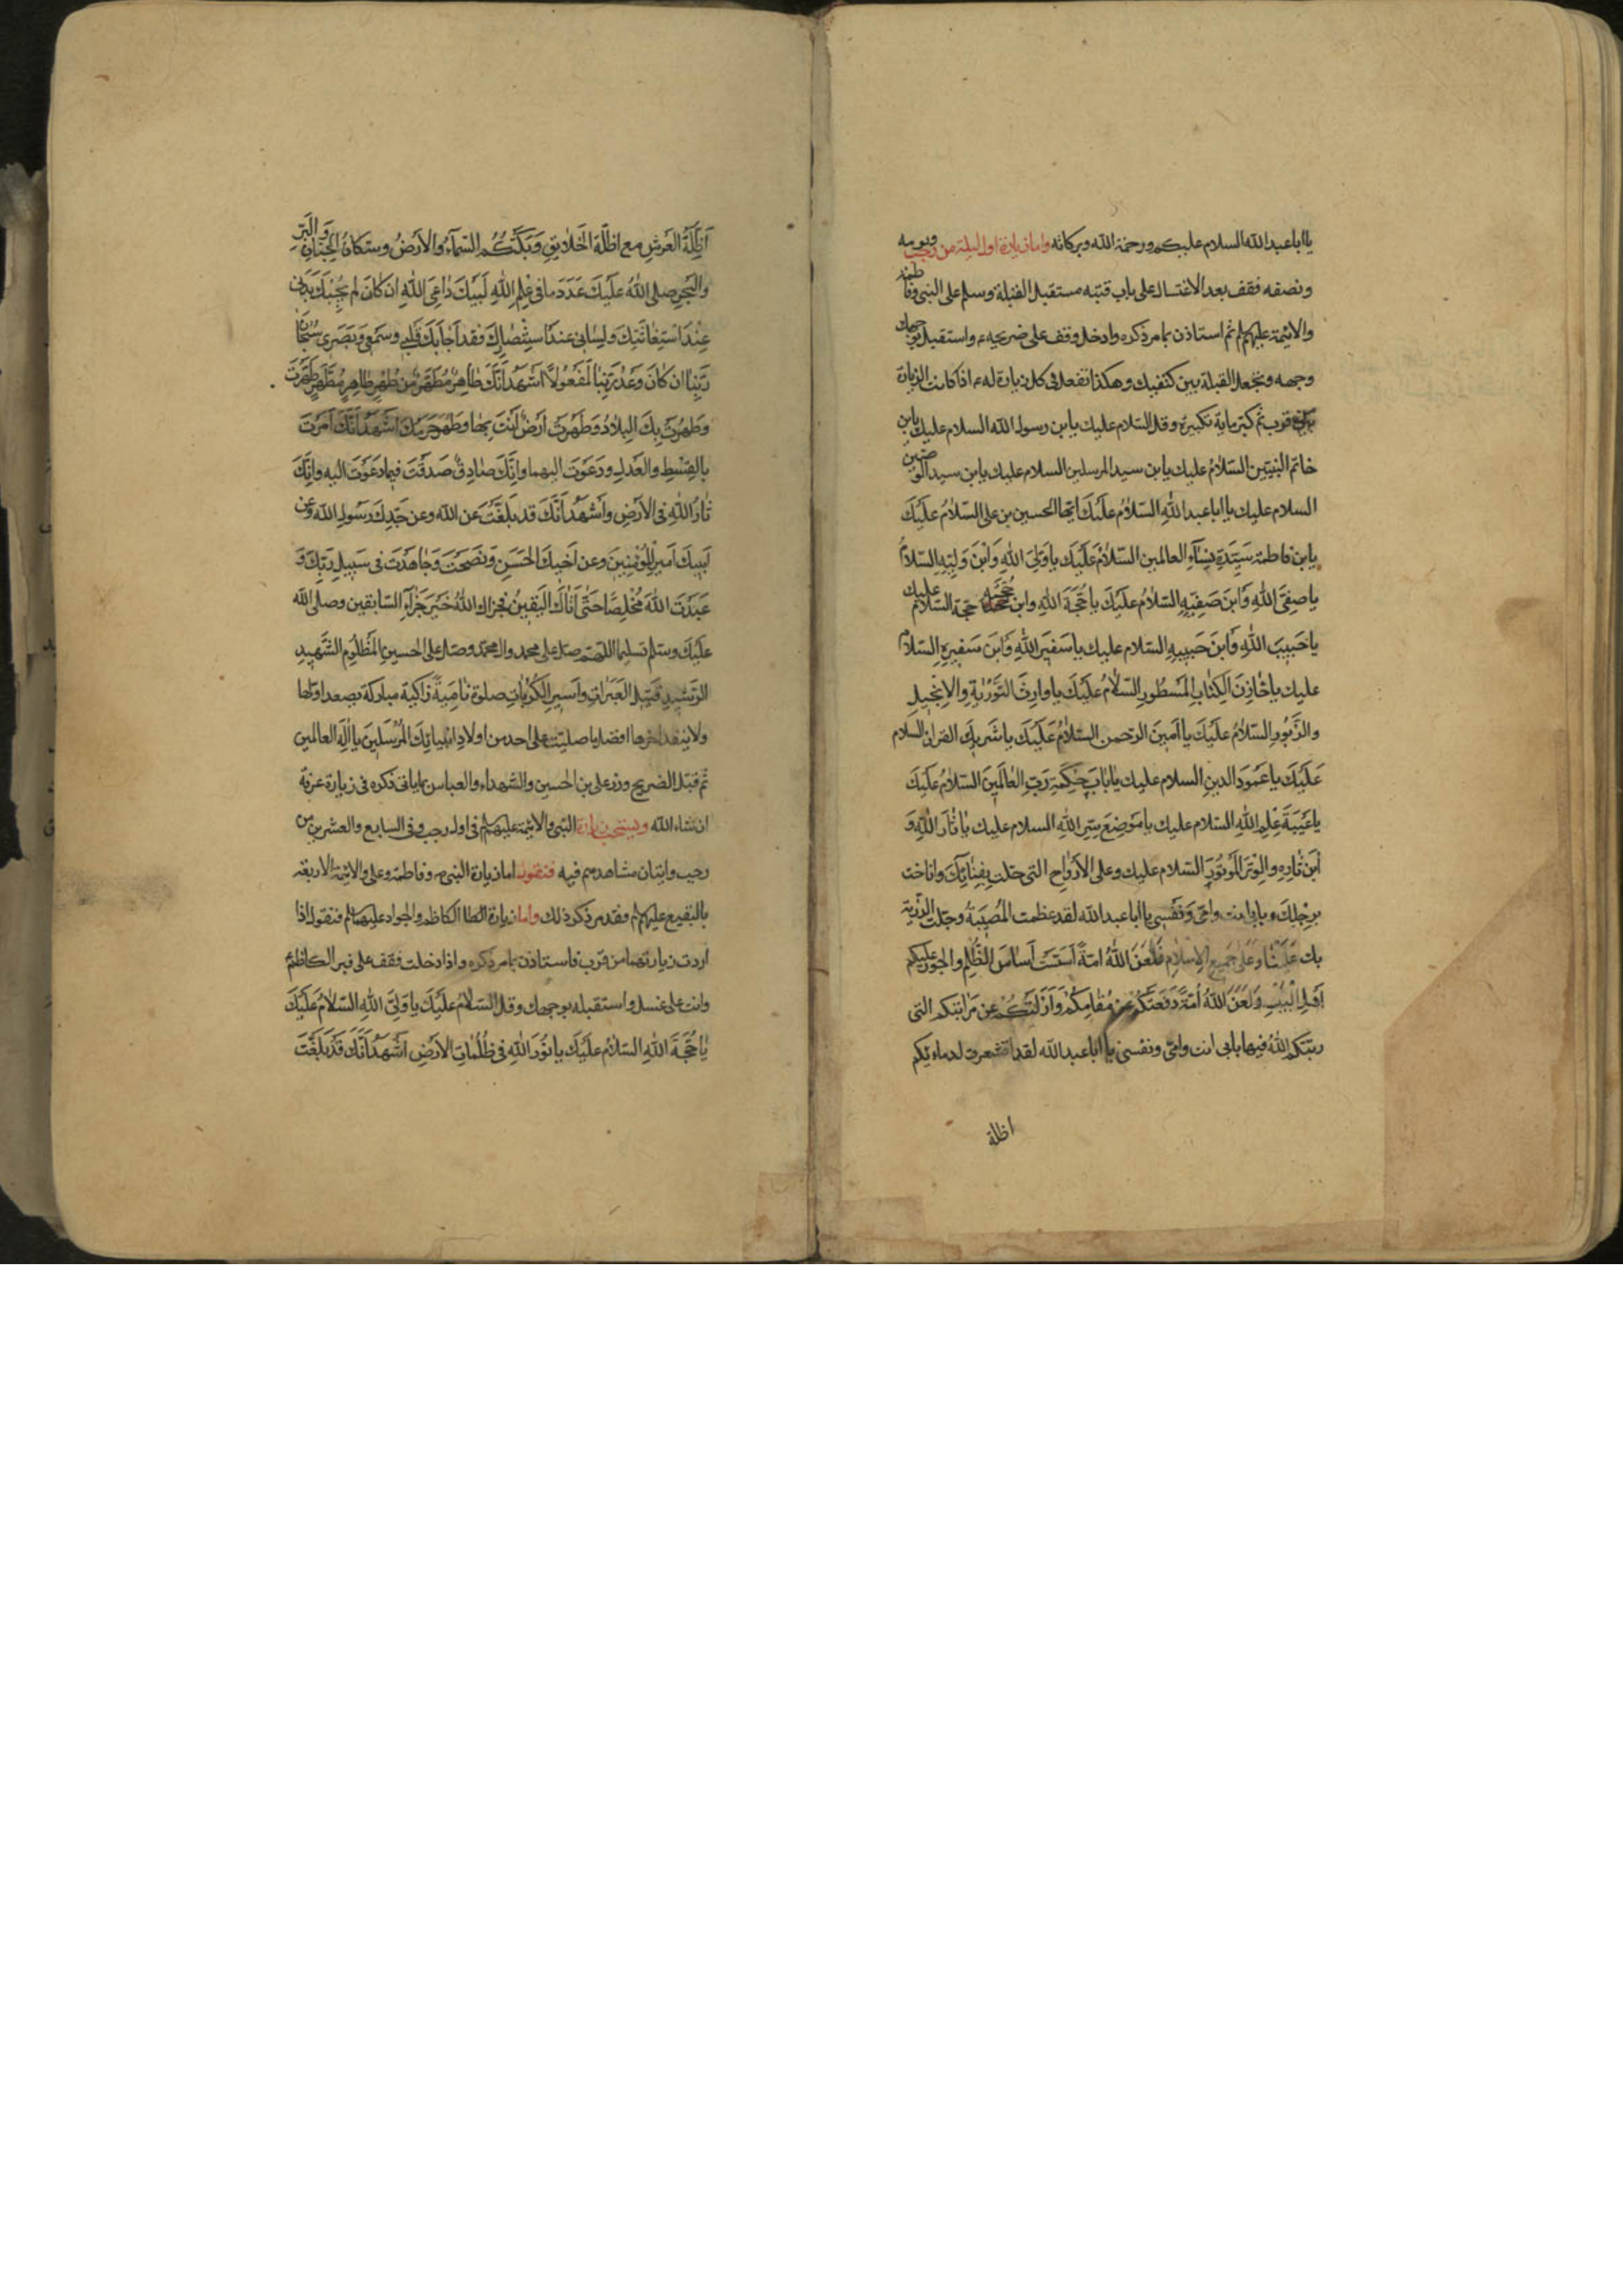 يا ابا عبد الله السلام عليكم ورحمة الله وبركاته واما زيارة اول ليلة من رجب ويومه
ونصفه فقف بعد الاغتسال على باب قبته مستقبل القبلة وسلم على النبي وفاطمة
والائمة عليهم لم ثم استاذن بما مر ذكره وادخل وقف على ضريحه ء واستقبل بوجهك
وجهه وتجعل القبلة بين كتفيك وهكذا تفعل في كل زيارة له ء اذا كانت الزيارة
قرب ثم كبر ماية تكبيرة وقل السلام عليك يابن رسول الله السلام عليك يابن
خاتم النبيين السَّلامُ عليك يابن سيد المرسلين السلام عليك يابن سيد الوصيين
السلام عليك يا ابا عبد اللهِ السَّلامُ عَلَيْكَ ايها الحسين بن علي السَّلامُ عَلَيْكَ
يابن فاطمة سَيِّدَةِ نِسَآءِ العالمين السَّلامُ عَلَيْكَ ياوَلِيَ اللهِ وَابْنَ وَلِيِّهِ السَّلامُ
ياصِفِيَّ اللهِ وَابنَ صَفِيِّهِ السَّلامُ عَلَيْكَ ياحُجَّةَ اللهِ وابن حُجَّتِهِ السَّلام عليك
ياحَبيبَ اللهِ وَابنَ حَبيبِهِ السلام عليك ياسَفيرَ اللهِ وَابنَ سَفيرِهِ السَّلامُ
عليك ياخازِنَ الكِتابِ المَسْطُورِ السَّلامُ عَلَيْكَ ياوارِثَ التَّوْرٰيةِ والاِنجيلِ
والزَّبُورِ السَّلامُ عَلَيْكَ يا اَمينَ الرحمن السَّلامُ عَلَيْكَ ياشَريكَ القران السلام
عَلَيْكَ ياعَمُودَ الدينِ السلام عليك يابابَ حِكْمَةِ رَبِّ العٰالَمينَ السَّلامُ عَلَيْكَ
ياعَيْبَةَ عِلْمِ اللهِ السَّلام عليك يامَوضِعَ سِرِّ اللهِ السلام عليك ياثٰارَ اللهِ وَ
ابْنَ ثٰارِهِ والوِتْرَ المَوتُورَ السَّلام عليك وعلى الاَرْواحِ التى حلت بِفِنٰائِكَ واناخت
بِرحْلِكَ بابي انت وامّي وَنَفْسي يا ابا عبد الله لقد عظمت المُصيبَةُ وجلت الرَّزِية
بك عَلَيْنٰا وَعَلى جَميعِ الاِسْلامِ فَلَعَنَ اللهُ امّةً اَسَّسَتْ اَساسَ الظُّلْمِ والجور عليكم
اَهْلِ الْبَيْتِ وَلَعَنَ اللهُ اُمَّةً دَفَعَتْكُمْ عن مَقٰامِكُمْ وَاَزٰالَتْكُمْ عن مَراتِبِكُم التى
رتبكم اللهُ فيها بابي انت وامّي ونفسي يا ابا عبد الله لقد اقشعرت لدمائكم
اظلة
اَظِلَّةُ العَرْشِ مع اظلَّة الخَلايِقِ وَبَكَتْكُم السَّمآءُ والاَرْضُ وسكانُ الجِنانِ وَالبَرِّ
والبَحْرِ صلى اللهُ عَلَيْكَ عَدَدَ مافي عِلمِ اللهِ لَبَّيْكَ دٰاعِيَ اللهِ ان كانَ لم يُجِبْكَ بَدَني
عِنْدَ استِغٰاثَتِكَ ولِساني عندَ اسْتِنْصارِكَ فَقد اَجابَكَ قَلبي وسَمْعي وَبَصَري سُبْحٰانَ
رَبِّنٰا اِن كانَ وَعْدُ رَبِّنٰا لَمَفْعُولاً اَشْهَدُ اَنَّكَ طٰاهِرٌ مُطَهَّرٌ مِن طُهْرٍ طاهِرٍ مُطَهَّرٍ طَهُرْتَ
وطَهُرَت بِكَ البِلادُ وَطَهُرَتْ اَرْضٌ اَنْتَ بِها وطَهُرَ حَرَمُكَ اَشْهَدُ اَنَّكَ اَمَرْتَ
بِالقِسْطِ والعَدلِ ودَعَوتَ اليهما وانَّكَ صٰادِقٌ صَدَقْتَ فيما دَعَوتَ اليه وانّكَ
ثٰارُ اللهِ في الاَرْضِ واَشْهَدُ اَنَّكَ قد بَلَّغْتَ عن الله وعن جَدِّكَ رَسُولِ الله وعن
اَبيكَ اَميرِ المُؤْمِنينَ وعن اَخيكَ الحَسَنِ ونَصَحْتَ وَجٰاهَدْتَ فى سَبيلِ رَبِّكَ وَ
عَبَدْتَ اللهَ مُخْلِصًا حَتّى اَتٰاكَ اليَقينُ فجزاك اللهُ خَيْرَ جَزٰآءِ السّابقين وصلى الله
عَلَيْكَ وسلم تسليما اللهم صل على محمد وال محمد وصل على الحسين المَظْلُوم الشَّهيدِ
الرَّشيدِ قَتيلِ العَبَراتِ واَسيرِ الكُرُباتِ صلوة نٰامِيَةً زاكية مباركة يصعد اولها
ولا ينفد اخرها افضل ماصليت على احد من اولاد انبيائِكَ المُرْسَلينَ يا اِلٰهَ العالمين
ثم قبل الضريح وزر علي بن الحسين والشهداء والعباس بما ياتي ذكره في زيارة عرفة
ان شاء الله ويستحب زيارة النبي والائمة عليهم لم في اول رجب وفي السابع والعشرين من
رجب واتيان مشاهدهم فيه فنقول اما زيارة النبي ص وفاطمة وعلي والائمة الاربعة
بالبقيع عليهم لم فقد مر ذكر ذلك واما زيارة الكاظم والجواد عليهما لم فنقول اذا
اردت زيارتهما من قرب فاستاذن بما مر ذكره واذا دخلت فقف على قبر الكاظم ع
وانت على غسل واستقبله بوجهك وقل السَّلامُ عَلَيْكَ ياوَلِيَّ اللهِ السَّلامُ عَلَيْكَ
ياحُجَّةَ اللهِ السَّلامُ عَلَيْكَ يانُورَ اللهِ في ظُلُماتِ الاَرْضِ اَشْهَدُ اَنَّكَ قَدْ بَلَّغْتَ